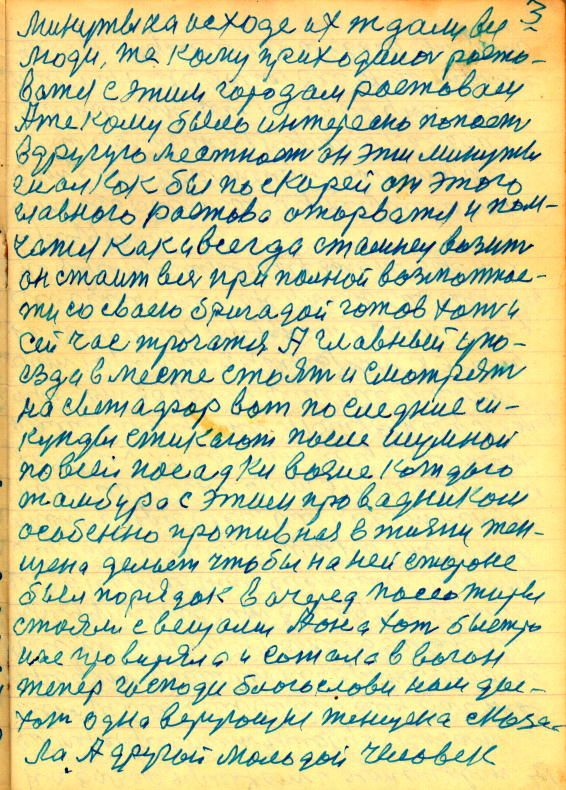 3
минуты на исходе их ждали все
люди, те кому приходилос расто-
ватся с этим городам растовам
А те кому было интересно попаст
в другую местност он эти минуты
гнал как бы поскорей от этого
главного растова оторватся и пом-
чатся как и всегда стаит
он стаит вся при полной возможнос-
ти со своею бригадой готов хоти
сей час трогатся А главный и по-
езда вместе стоят и смотрят
на светафор вот последние си-
кунды стикают после шумной
по всей посадки возле каждого
тамбура с этим провадником
особенно противная в жизни жен-
щена делает чтобы на ней стороне
был порядок в очеред пассажиры
стояли с вещами А она хот быстро
их провиряла и сажала в вагон
тепер господи благослови нам ды-
хот одна верующия женщена сказа-
ла А другой молодой человек